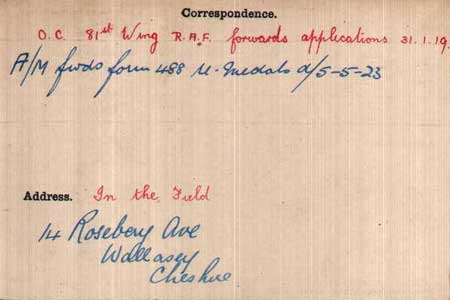 Correspondence.
O.C. 81st Wing R.A.F. forwards applications 31.1.19.
A/M fwds form 488 re-Medals d/5-5-23
Address. In the Field
14 Rosebery Ave
Wallasey
Cheshire